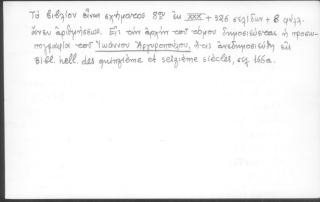 Τὸ βιβλίον εἶναι σχήματος 8ου ἐκ XXX + 326 σελίδων + 8 φύλλ.
ἄνευ ἀριθμήσεως. Εἰς τὴν ἀρχὴν τοῦ τόμου δημοσιεύεται ἡ προσω-
πογραφία τοῦ Ἰωάννου Ἀργυροπούλου, ἥτις ἀνεδημοσιεύθη εἰς
Bibl. hell. des quinzième et seizième siècles, σελ. 166α.